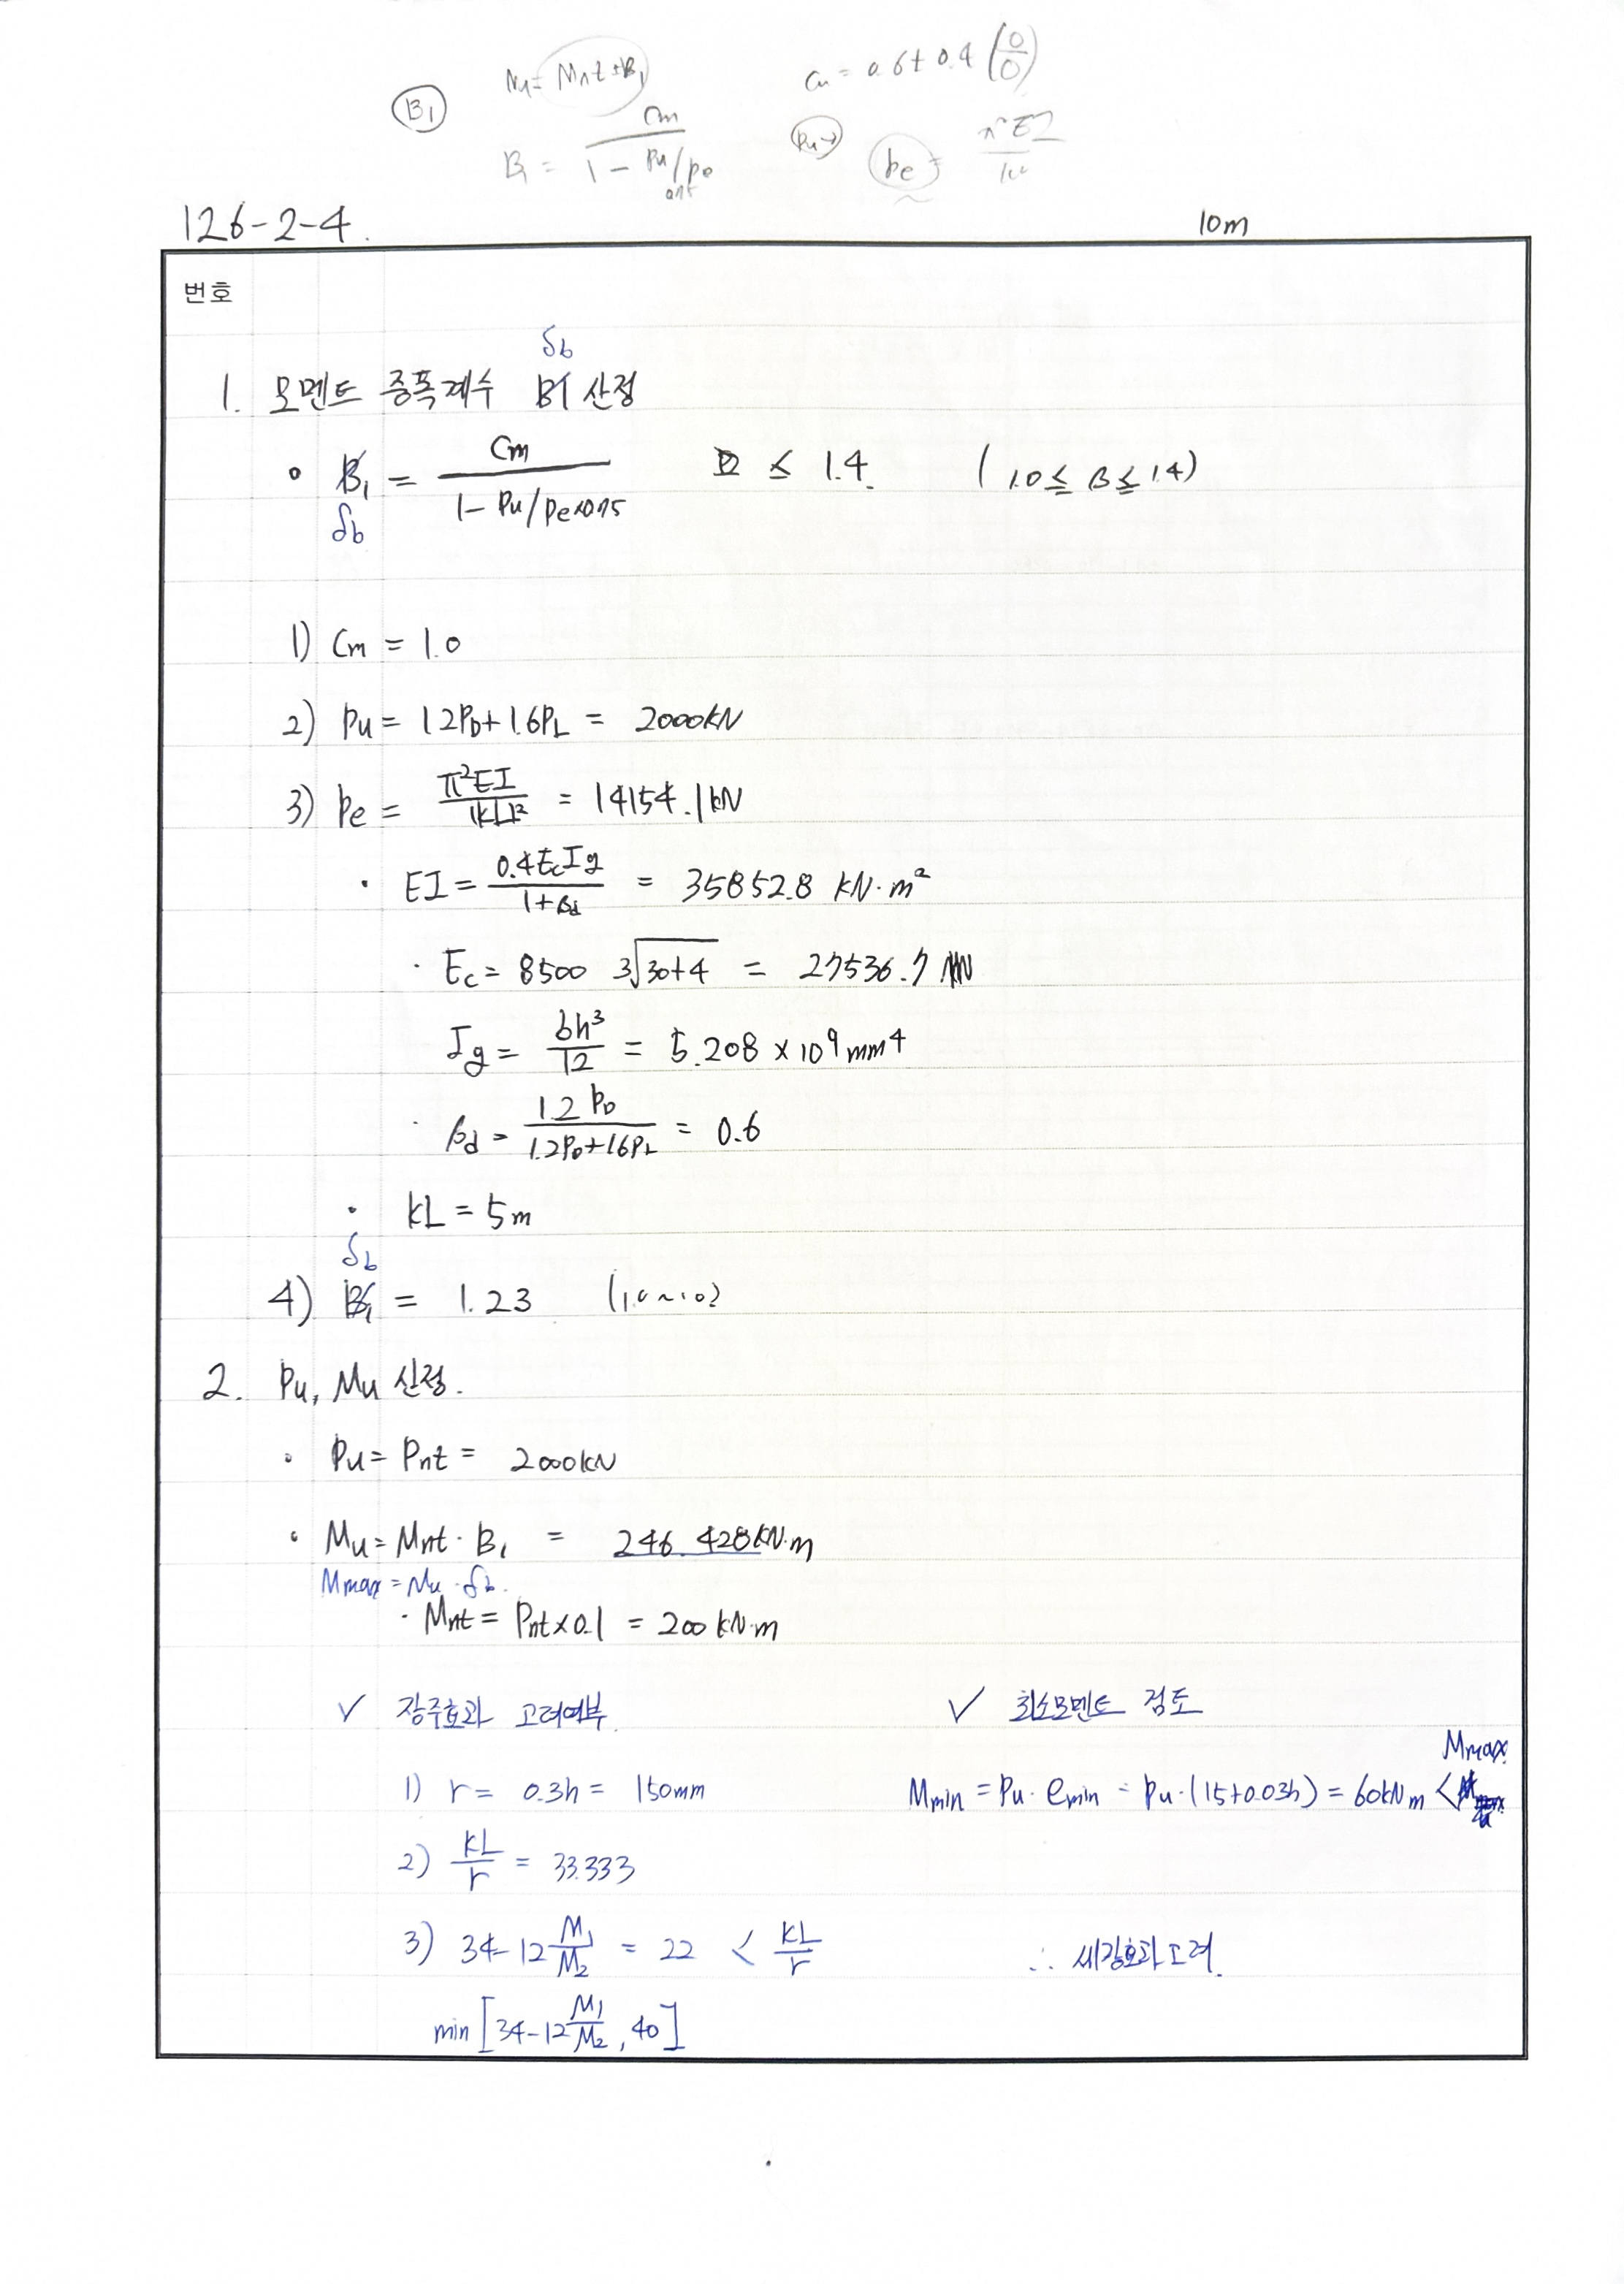 B1
Mu = Mnt × B1
B1 = Cm / 1 - Pu/Pe
Cm = 0.6 + 0.4 (0/0)
Pu →
Pe = π²EI
126-2-4.
10m
번호
δb
1. 모멘트 증폭계수 B1 산정
∘ B1 = Cm / 1 - Pu/Pe×0.75 ≤ 1.4. ( 1.0 ≤ B ≤ 1.4 )
δb
1) Cm = 1.0
2) Pu = 1.2PD + 1.6PL = 2000kN
3) Pe = π²EI / (kL)² = 14154.1kN
· EI = 0.4EcIg / 1+βd = 35852.8 kN·m²
· Ec = 8500 3√30+4 = 27536.7
Ig = bh³ / 12 = 5.208 × 10⁹mm⁴
· βd = 1.2PD / 1.2PD+1.6PL = 0.6
· kL = 5m
δb
4) B1 = 1.23
2. Pu, Mu 산정.
∘ Pu = Pnt = 2000kN
∘ Mu = Mnt · B1 = 246.428kN·m
Mmax = Mu · δb.
· Mnt = Pnt×0.1 = 200kN·m
✓ 장주효과 고려여부
1) r = 0.3h = 150mm
2) kL / r = 33.333
3) 34-12 M1/M2 = 22 < kL/r
min [34-12 M1/M2 , 40]
✓ 최소모멘트 검토
Mmax
Mmin = Pu · emin = Pu·(15+0.03h) = 60kNm <
∴ 세장효과고려.